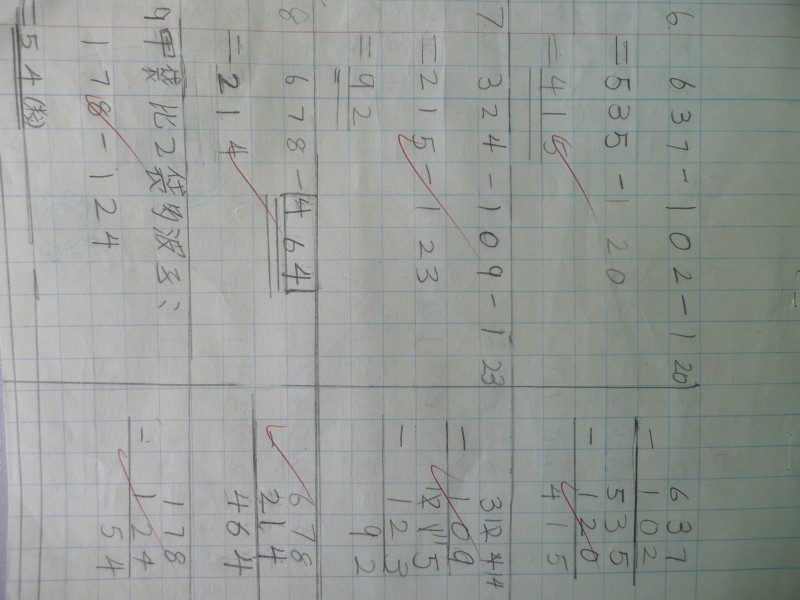 6. 637-102-120
=535-120
=415
637
- 102
535
- 120
415
7. 324-109-123
=215-123
=92
- 109
- 123
92
8 678-464
=214
678
214
464
9 甲袋比乙袋多波子:
178-124
=54(粒)
178
- 124
54